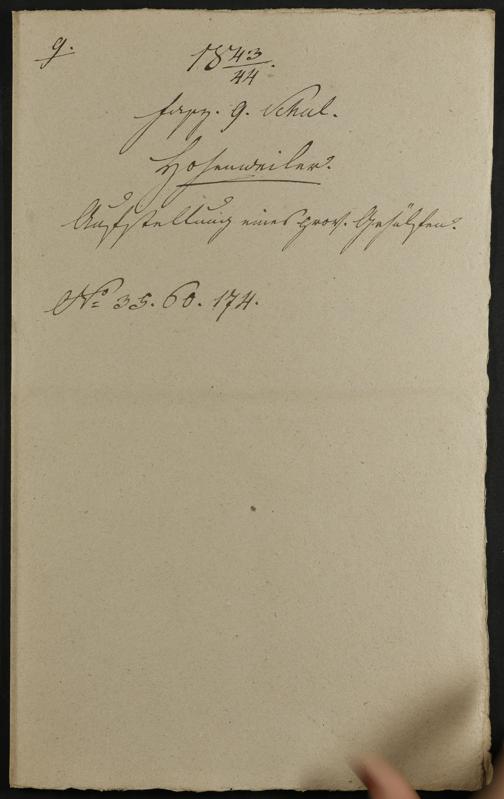 9.
18 43/44.
Fasz. 9. Schul.
Hohenweiler.
Aufstellung eines prov. Gehülfen.
No 35. 60. 174.